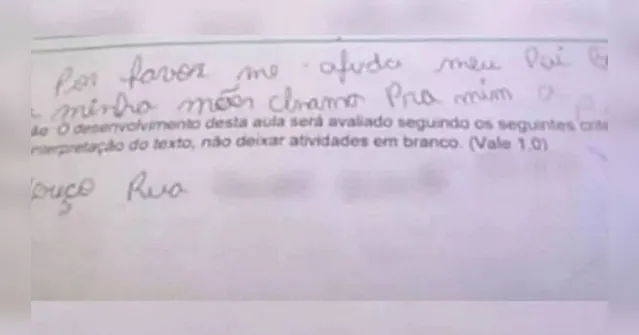 Por favor me ajuda meu Pai B
minha mãe chama Pra mim a p
ão O desenvolvimento desta aula será avaliado seguindo os seguintes crité
nterpretação do texto, não deixar atividades em branco. (Vale 1,0)
Rua